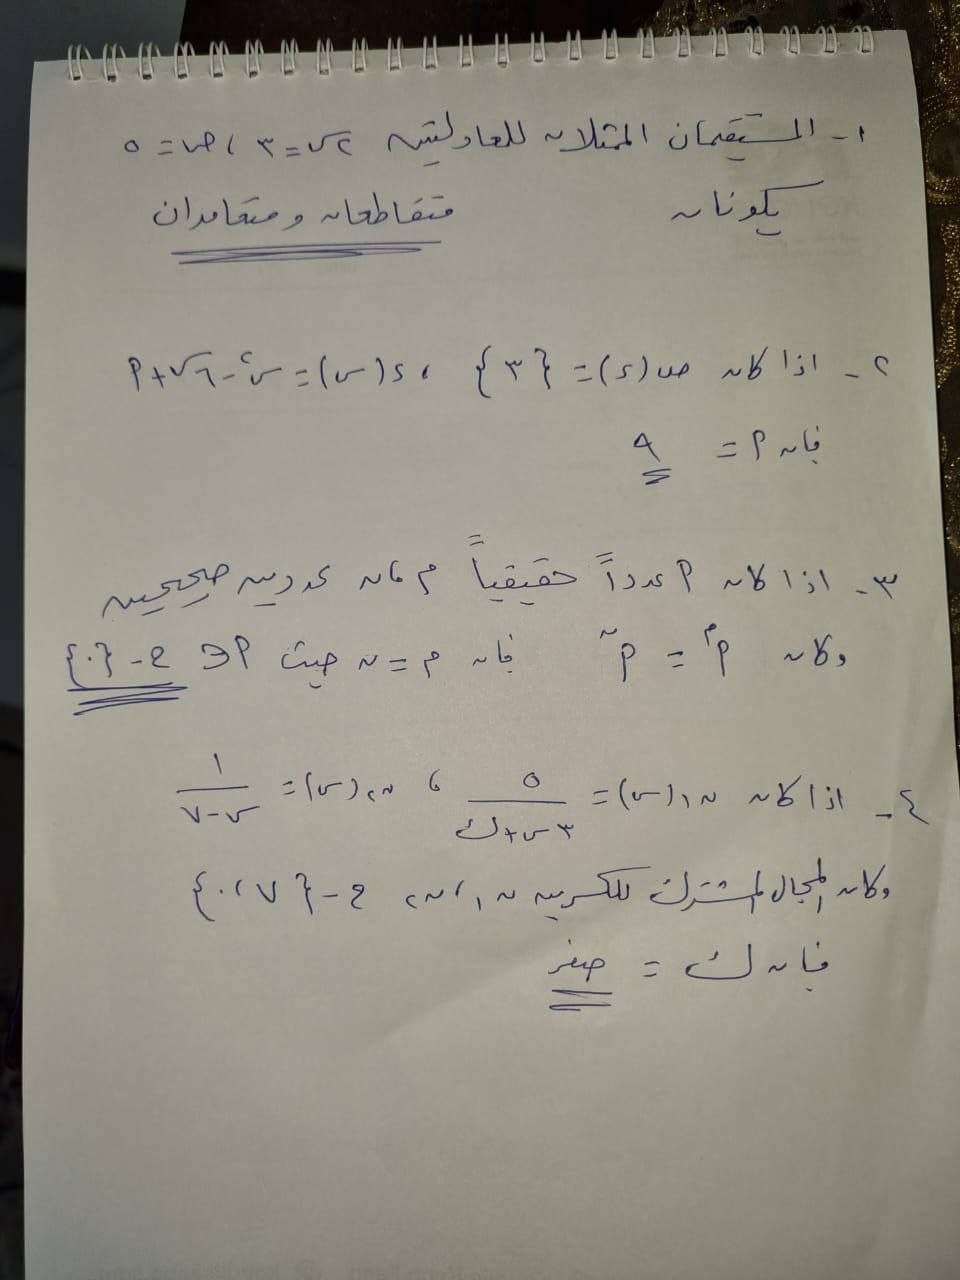 ١- المستقيمان الممثلان للمعادلتين ٢س = ٣ ، ص = ٥
يكونان متقاطعان ومتعامدان
٢- اذا كان ص(د) = {٣} ، د(س) = س٢ - ٦س + م
فان م = ٩
٣- اذا كان م عدداً حقيقياً م ، ن عددين صحيحين
وكان م^م = م^ن فان م = ن حيث م ∈ ح - {٠}
٤- اذا كان ن١(س) = ٥/(٣س + ك) ، ن٢(س) = ١/(س - ٧)
وكان المجال المشترك للكسرين ن١ ، ن٢ ح - {٧ ، ٠}
فان ك = صفر